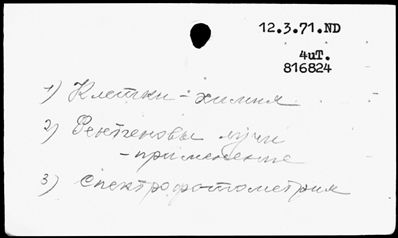 12.3.71.ND
4иT.
816824
1) Клетки - химия
2) Рентгеновы лучи
- применение
3) Спектрофотометрия